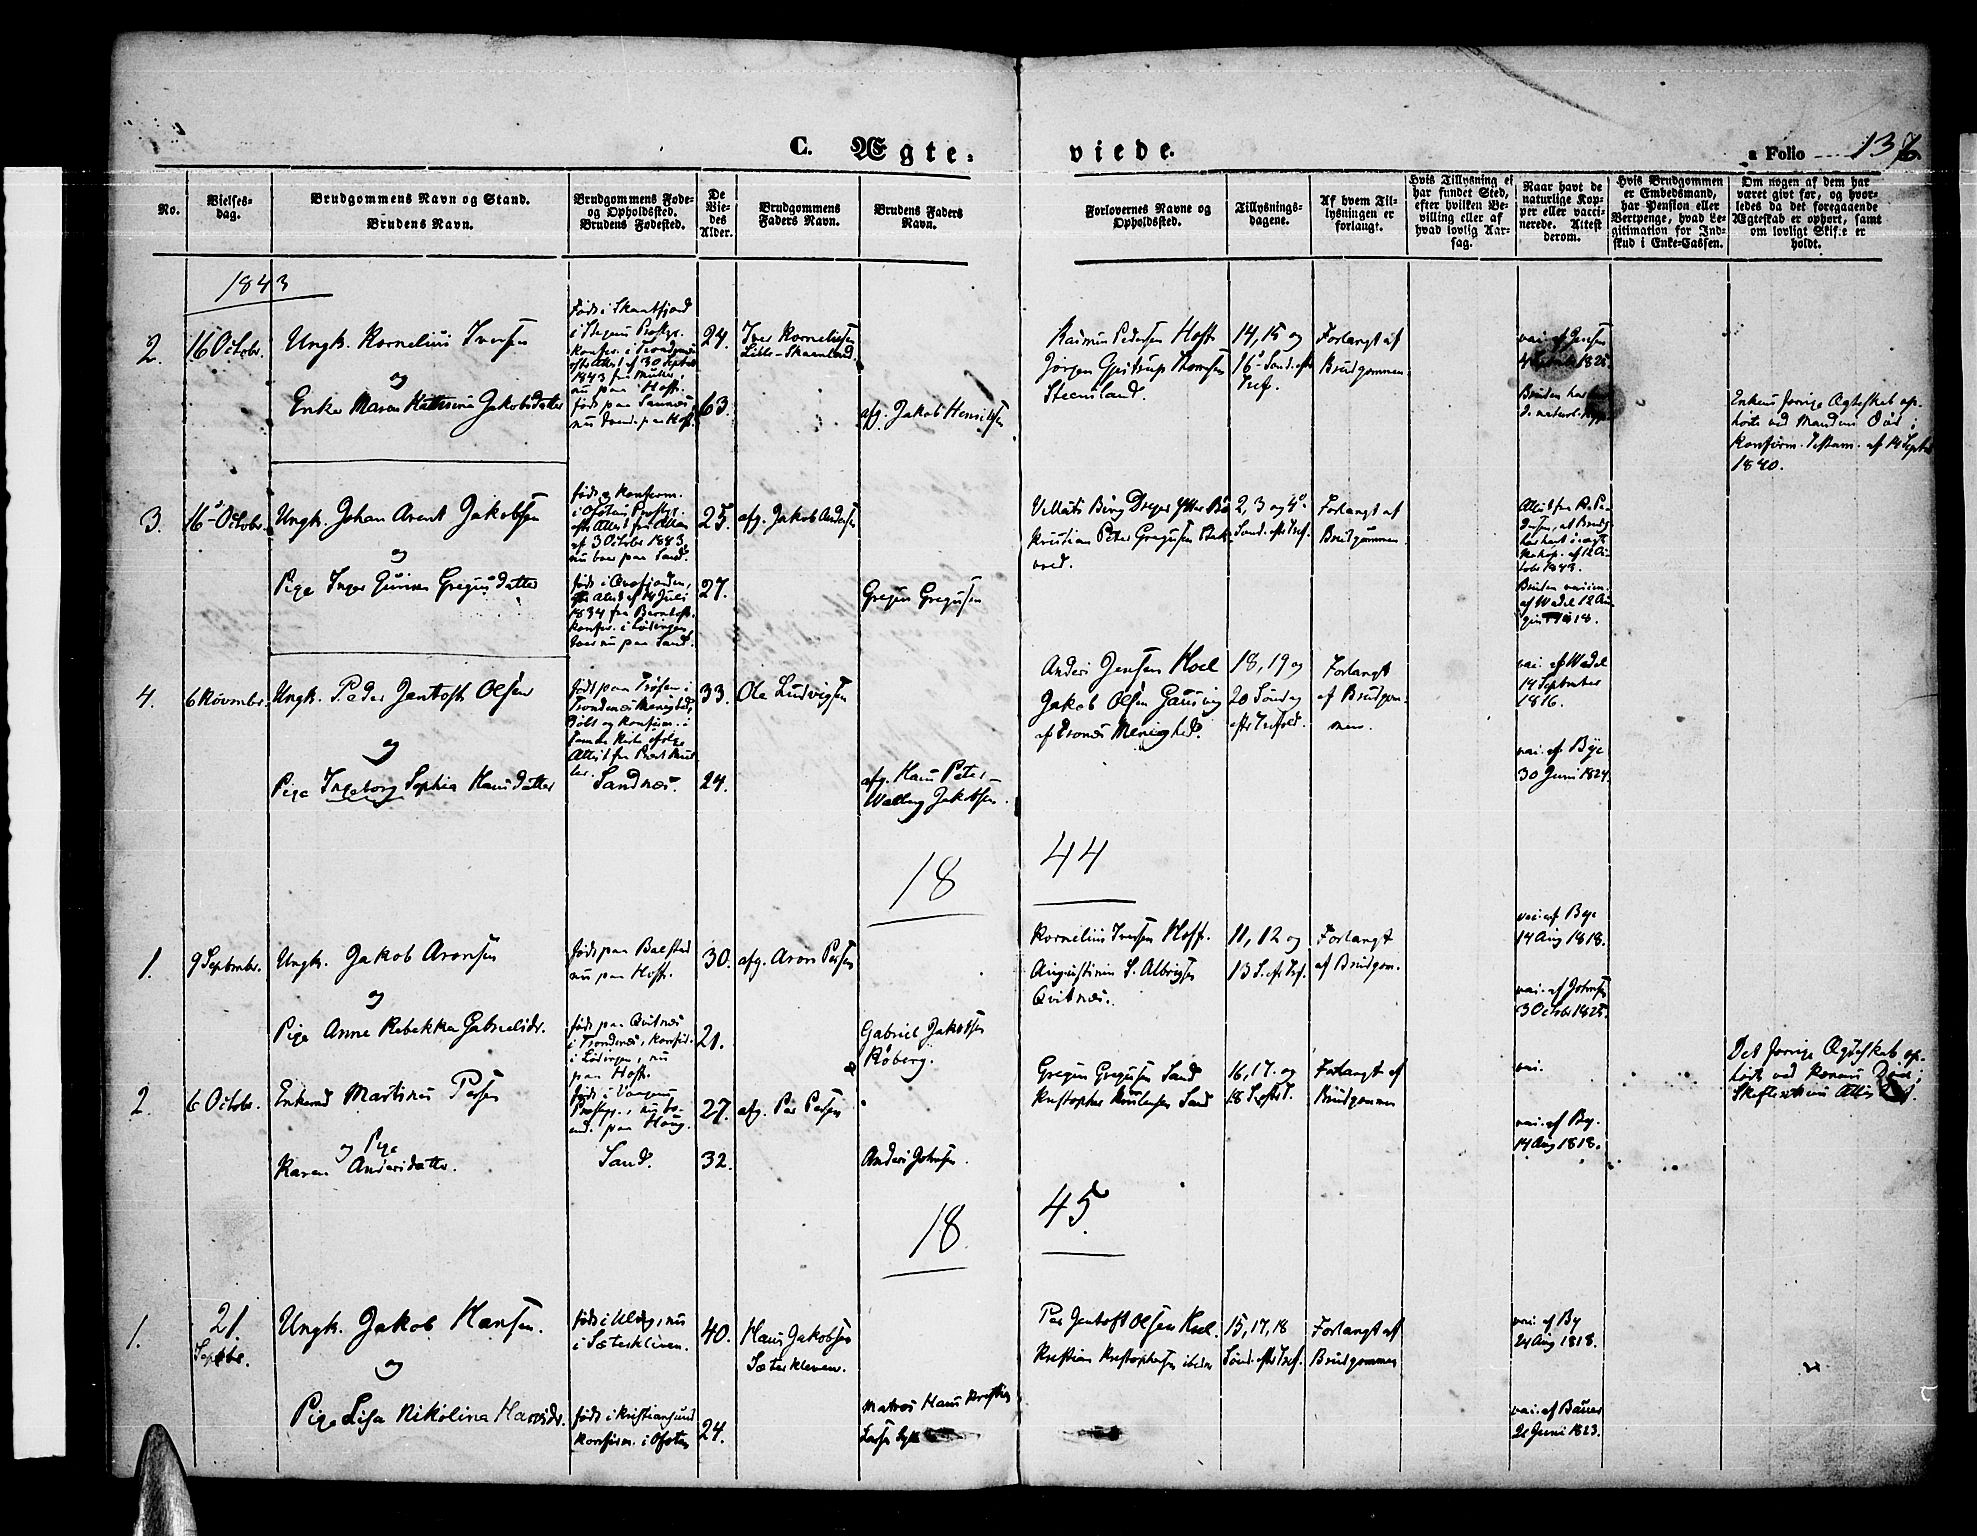 C. Ægte-
viede.
a Folio 137
No.
Vielses-
dag.
Brudgommens Navn og Stand.
Brudens Navn.
Brudgommens Føde-
og Opholdssted.
Brudens Fødested.
De
Vie-
des
Alder.
Brudgommens
Faders Navn.
Brudens Faders
Navn.
Forlovernes Navne og
Opholdssted.
Tillysnings-
dagene.
Af hvem Til-
lysningen er
forlangt.
Hvis Tillysning ei
har fundet Sted,
efter hvilken Be-
villing eller af
hvad lovlig Aar-
sag.
Naar havt de
naturlige Kop-
per eller vacci-
nerede. Attest
derom.
Hvis Brudgommen
er Embedsmand,
har Pension eller
Vertpenge, hvad Le-
gitimation for Ind-
skud i Enke-Cassen.
Om nogen af dem har
været givt før, og hvor-
ledes da det foregaaende
Ægteskab er ophørt, samt
om lovligt Skifte er
holdt.
1843
2. 16 Octobr. Ungk. Kornelius Iversen
og
Enke Maren Kathrina Jakobsdatter
1843 fra Müller,
nu paa Hoft.
født paa Sannæs
24.
63.
Iver Kornelissen
afg. Jakob Henriksen
Rasmus Pedersen Hoft
Jørgen Gjæstrup Thomsen
Steensland.
14, 15 og
16 Sønd. eft.
Tref.
Forlangt af
Brudgommen.
vac. af Jensen
1825
Bruden har
d. naturl. Kopp
Enkens forrige Ægteskab op-
hørte ved Mandens Død i
Konfirm. Testam. af 14 Septbr
1840.
3. 16 Octobr. Ungk. Johan Arent Jakobsen
og
Pige Inger Gurina Gregusdatter
født og konfirm.
i Ofoten Præstgj.
af 3 Octobr 1843,
nu boer paa Sand.
1834 fra Berntoft
konfir. i Lødingen
boer nu paa Sand.
25.
27.
afg. Jakob Andersen
Gregus Gregusen
Kristian Peter Gregusen
2, 3 og 4
Sønd. eft. Tref.
Forlangt af
Brudgommen.
tobr 1843.
Bruden vaccin.
af Wedel 12 Au-
gust 1818.
4. 6 Novembr. Ungk. Peder Jentoft Olsen
og
Pige Ingeborg Sophia Hansdatter
Trondenæs Menighed,
Sandnæs.
33.
24.
Ole Ludvigsen
afg. Hans Peter
Jakobsen.
Anders Jensen Hoel
Jakob Olsen
Menighed.
18, 19 og
20 Søndag
efter Trefold.
Forlangt
af Brudgom-
men.
vac. af Wedel
14 September
1816.
vac. af Bye
30 Juni 1824.
18 44
1. 9 Septembr. Ungk. Jakob Aronsen
og
Pige Anne Rebekka Gabrielsdr.
født paa Balstad
nu paa Hoft.
født paa Qvitnæs
i Trondenæs, konfir.
i Lødingen, nu
paa Hoft.
30.
21.
afg. Aron Persen
Gabriel Jakobsen
Røberg.
Kornelius Iversen Hoft.
Augustinus S. Albrigtsen
Qvitnæs.
11, 12 og
13 S. eft. Tref.
Forlangt
af Brudgom.
vac. af Bye
14 Aug 1818.
vac. af Johnsen
3 Octobr 1825.
2. 6 Octobr. Enkemd Martinus Persen
og Pige
Karen Andersdatter.
Sand.
27.
32.
afg. Per Persen
Anders Johnsen.
Gregus Gregusen Sand
16, 17. og
18 S. eft. T.
Forlangt af
Brudgommen
vac.
vac. af By.
14 Aug 1818.
Det forrige Ægteskab op-
hørte ved Konens Død;
18 45
1. 21
Septbr. Ungk. Jakob Hansen.
og
Pige Lisa Nikolina Hansdr.
i Sæterkleven.
født i Kristiansund
konfirm. i Ofoten
40.
24.
Hans Jakobsen
Sæterkleven.
Matros Hans Kristian
Per Jentoft Olsen Hoel.
Kristian Kristophersen ibidm
15, 17, 18
Sønd. efter Tref.
Forlangt af
Brudgommen
vac. af By
24 Aug 1818.
vac. af Bauer
21 Juni 1823.